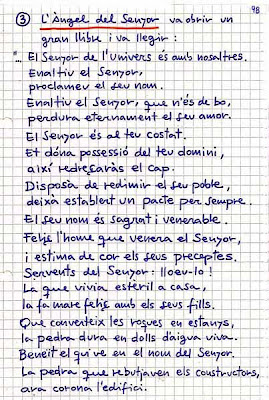 98
③ L'Àngel del Senyor va obrir un
gran llibre i va llegir:
"... El Senyor de l'univers és amb nosaltres.
Enaltiu el Senyor,
proclameu el seu nom.
Enaltiu el Senyor, que n'és de bo,
perdura eternament el seu amor.
El Senyor és al teu costat.
Et dóna possessió del teu domini,
així redreçaràs el cap.
Disposa de redimir el seu poble,
deixà establert un pacte per sempre.
El seu nom és sagrat i venerable.
Feliç l'home que venera el Senyor,
i estima de cor els seus preceptes.
Servents del Senyor: lloeu-lo!
La que vivia estèril a casa,
la fa mare feliç amb els seus fills.
Que converteix les roques en estanys,
la pedra dura en dolls d'aigua viva.
Beneït el qui ve en el nom del Senyor.
La pedra que rebutjaven els constructors,
ara corona l'edifici.